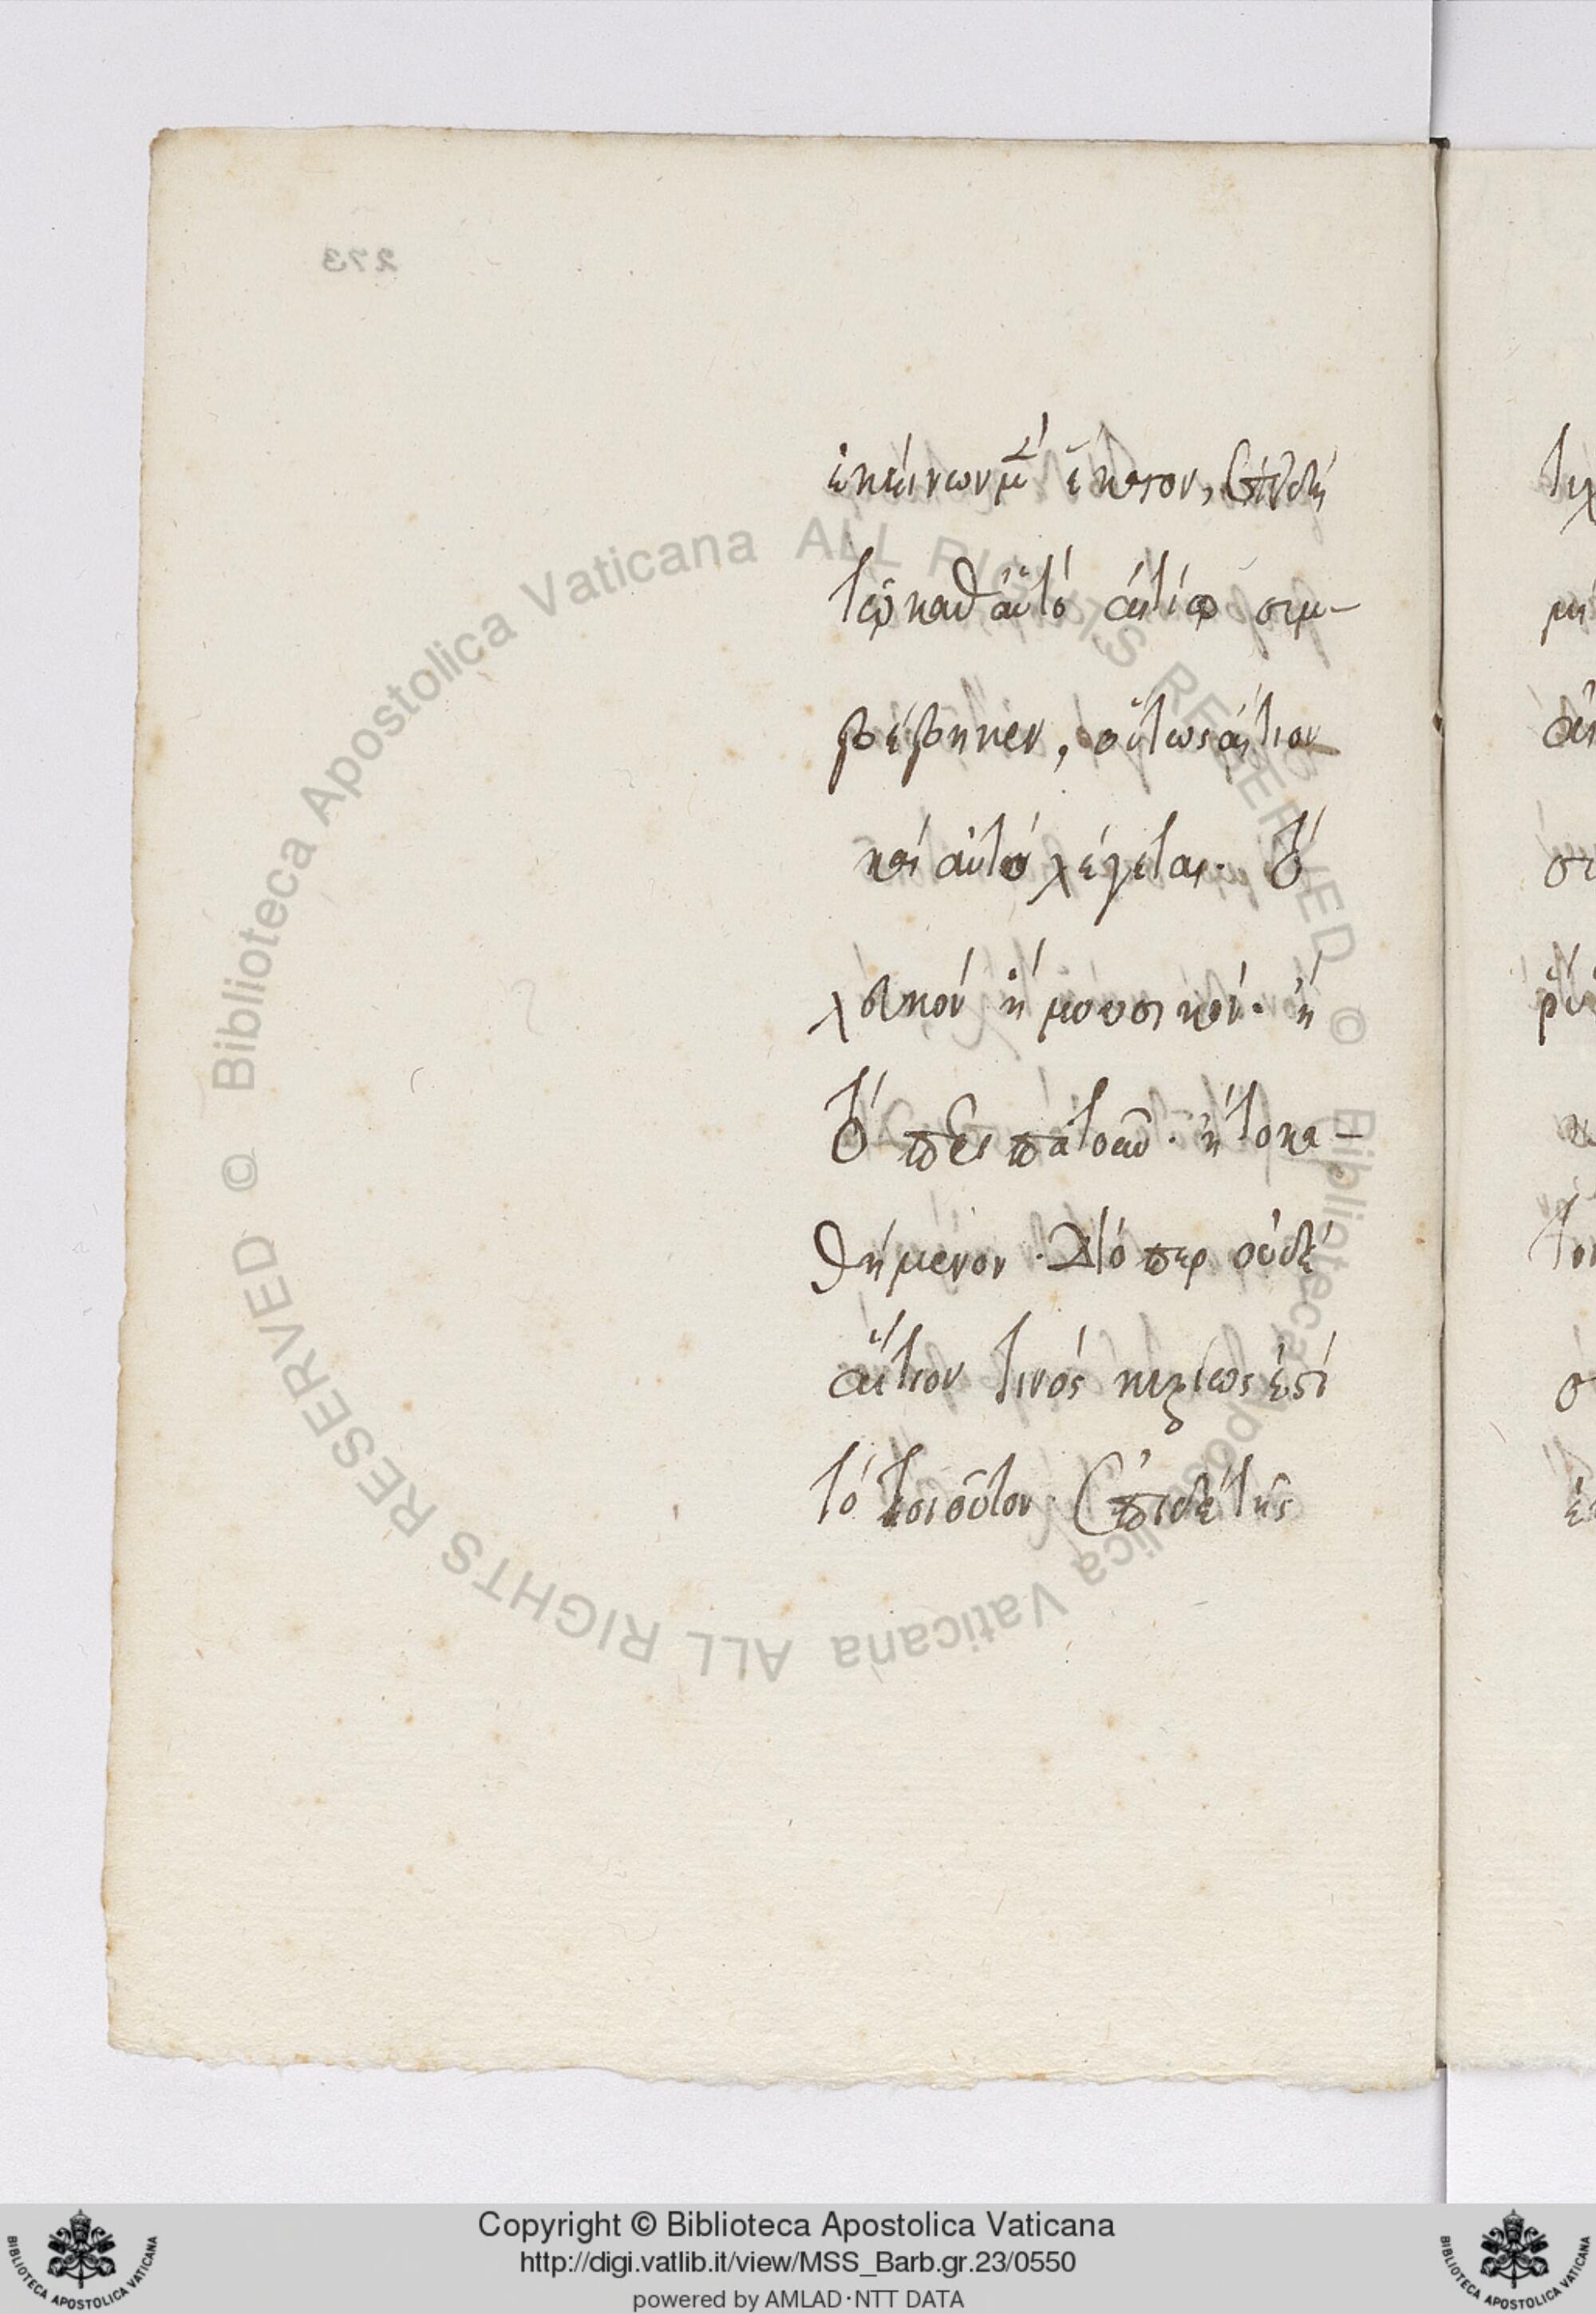 273
ἐκείνων μὲν ἕκαστον, ἐπειδὴ
τῷ καθ αὑτό αἰτίῳ συμ-
βέβηκεν, οὕτως αἴτιον
καὶ αὐτό λέγεται. τό
λευκόν ἤ μουσικόν. ἤ
τό περιπατοῦν. ἤ το κα-
θήμενον. Διόπερ οὐδέ
αἴτιον τινός κυρίως ἐστί
τό τοιοῦτον. Ἐπι δέ τῆς
© Biblioteca Apostolica Vaticana ALL RIGHTS RESERVED © Biblioteca Apostolica Vaticana ALL RIGHTS RESERVED
Copyright © Biblioteca Apostolica Vaticana
http://digi.vatlib.it/view/MSS_Barb.gr.23/0550
powered by AMLAD·NTT DATA
BIBLIOTECA APOSTOLICA VATICANA
BIBLIOTECA APOSTOLICA VATICANA